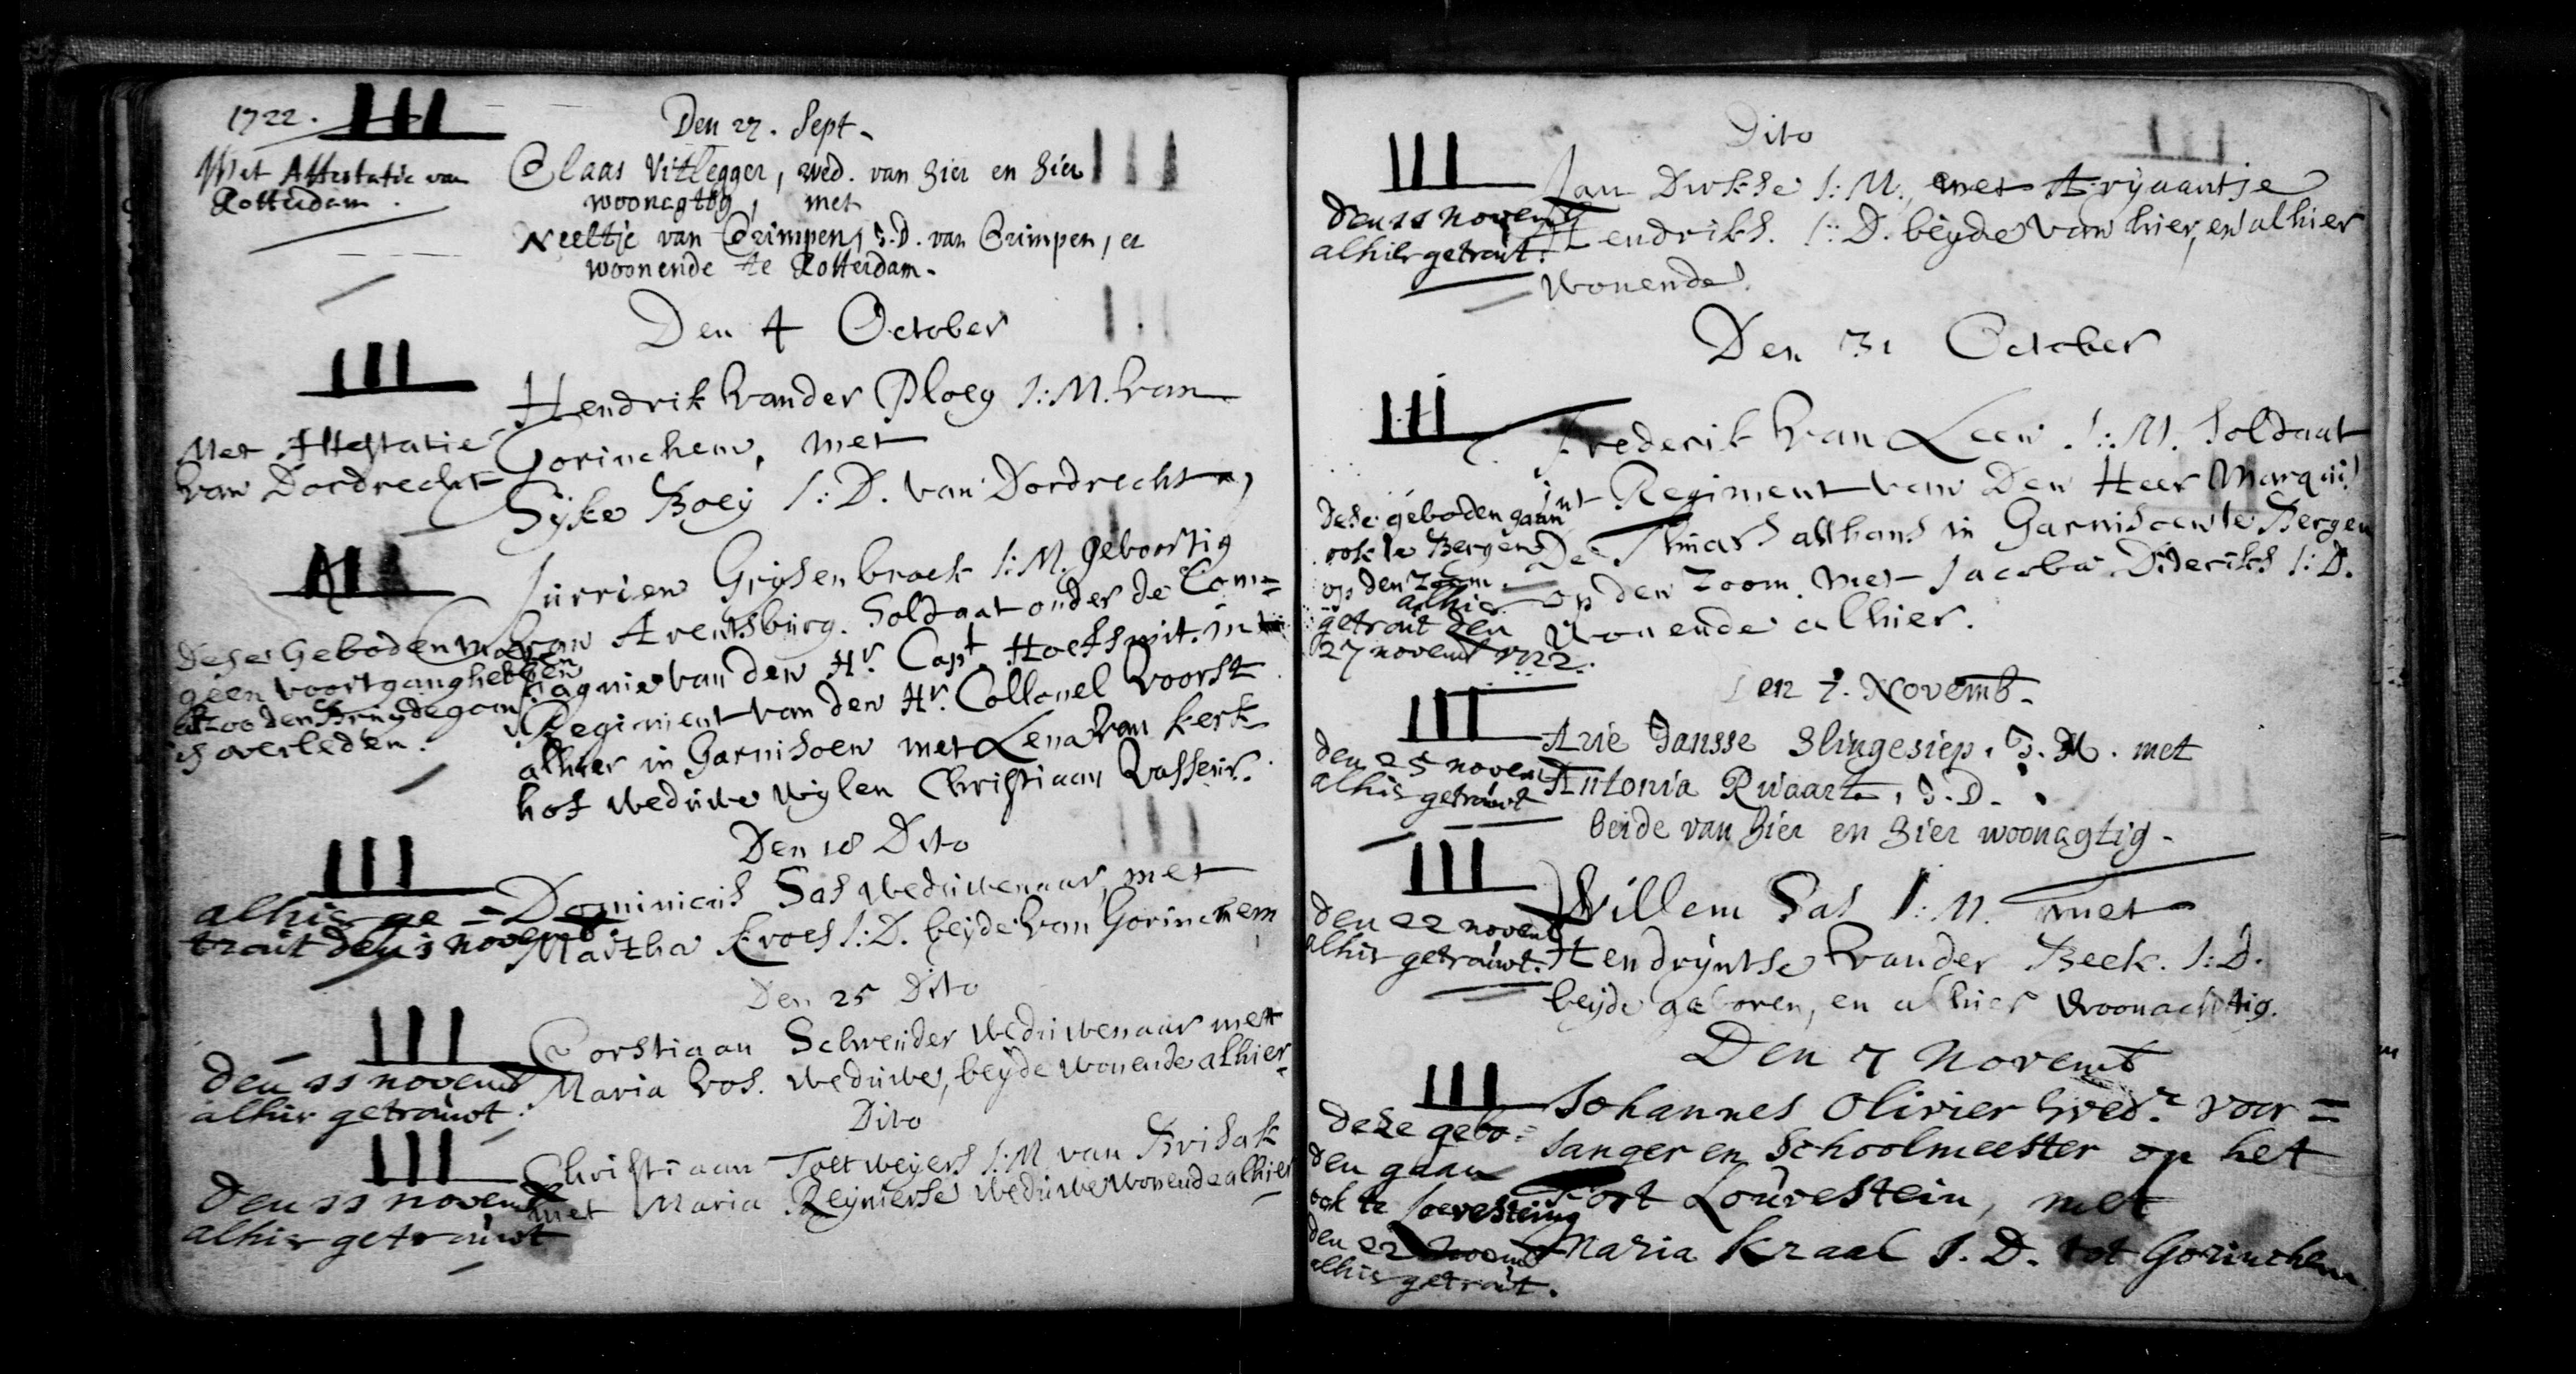 1722.
Den 27. Sept.
Met Attestatie van
Rotterdam.
Claas Uitlegger, wed. van hier en hier
woonagtig, met
Neeltje van Crimpen, J.D. van Crimpen, en
woonende te Rotterdam.
Den 4 October
Met Attestatie
van Dordrecht
Hendrik vander Ploeg J:M. van
Gorinchem, met
Sijke Boeij J:D. van Dordrecht
Dese Geboden
geen voortgang hebben
alsoo den Bruydegom
is overleden.
Jurrien Grijsenbroek J:M. geboortig
van Arentsburg. Soldaat onder de Com=
pagnie van den Hr. Capt. Hoefsmit. in
Regiment van den Hr. Collonel Voorst
alhier in Garnisoen met Lena van kerk
hof weduwe wijlen Christiaan Vasseur.
Den 18 Dito
alhier ge=
trout den 3 novemb.
Dominicus Sas weduwenaar, met
Martha Kroes J:D. beyde van Gorinchem
Den 25 Dito
den 11 novemb
alhier getrouwt.
Corstiaan Schneider weduwenaar met
Maria Vos. weduwe, beyde wonende alhier.
Dito
den 11 novemb
alhier getrouwt
Christiaan Toetweijers J:M van Brisak
met Maria Reynierse weduwe wonende alhier
Dito
den 11 novemb
alhier getrout.
Jan Dirkse J:M., met Aryaantje
Hendriks. J:D. beyde van hier, en alhier
wonende.
Den 31 October
Dese geboden gaan
ook te Bergen
op den Zoom.
alhier
getrout den
27 novemb 1722.
Frederik van Leew. J:M. Soldaat
int Regiment van Den Heer Marquis
De Thuars althans in Garnisoen te Bergen
op den Zoom. met Jacoba Dideriks J:D.
wonende alhier.
Den 7. Novemb.
den 25 novemb
alhier getrouwt
Arie Jansse Slingesiep, J.M. met
Antonia Rwaarts, J.D.
beide van hier en hier woonagtig.
den 22 novemb
alhier getrouwt.
Willem Sas J:M. met
Hendryntse vander Beek. J:D.
beyde geboren, en alhier woonachtig.
Den 7 Novemb
Dese gebo=
den gaan
ook te Loevesteing
den 22 novemb
alhier getrout.
Johannes Olivier wedr. voor=
sanger en Schoolmeester op het
Fort Louvestein, met
Maria Kraal J.D. tot Gorinchem